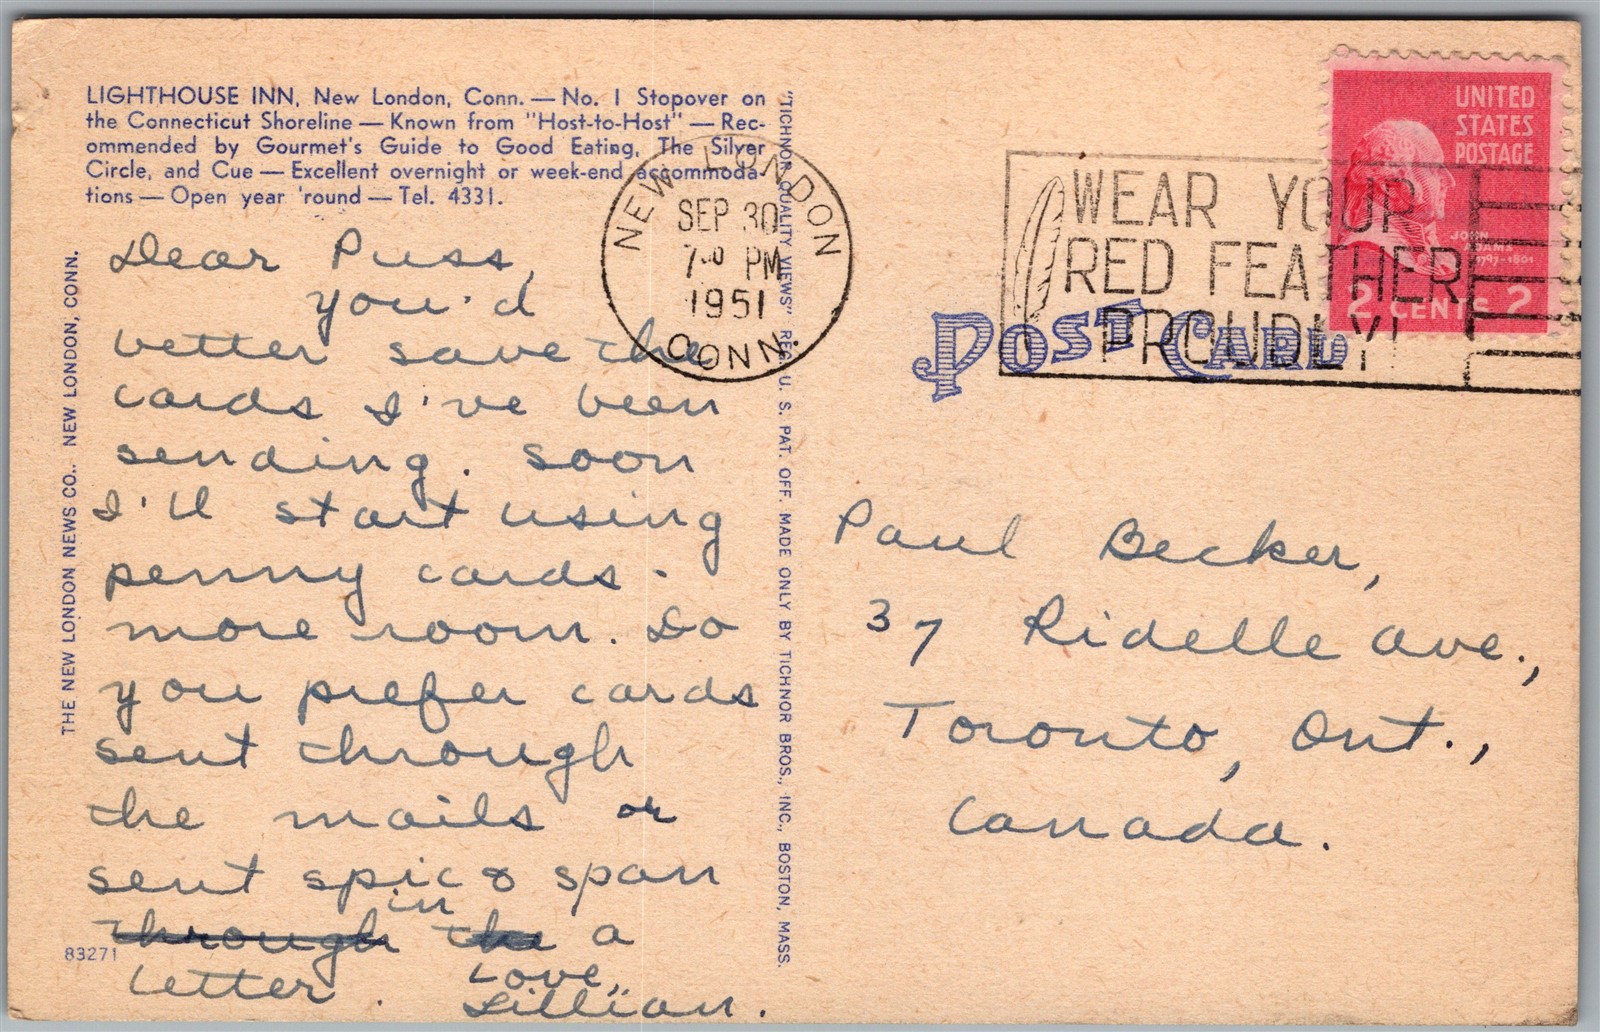 LIGHTHOUSE INN, New London, Conn. — No. 1 Stopover on
the Connecticut Shoreline — Known from "Host-to-Host" — Rec-
ommended by Gourmet's Guide to Good Eating, The Silver
Circle, and Cue — Excellent overnight or week-end accommoda-
tions — Open year 'round — Tel. 4331.
THE NEW LONDON NEWS CO., NEW LONDON, CONN.
83271
Dear Puss,
you'd
better save the
cards I've been
sending. Soon
I'll start using
penny cards -
more room. Do
you prefer cards
sent through
the mails or
sent spic & span
in
through the a
letter.
Love,
Lillian.
"TICHNOR QUALITY VIEWS" REG. U. S. PAT. OFF. MADE ONLY BY TICHNOR BROS., INC., BOSTON, MASS.
NEW LONDON
SEP 30
7 PM
1951
CONN.
WEAR YOUR
RED FEATHER
PROUDLY!
UNITED
STATES
POSTAGE
JOHN
ADAMS
1797-1801
2 CENTS 2
POST CARD
Paul Becker,
37 Ridelle Ave.,
Toronto, Ont.,
Canada.